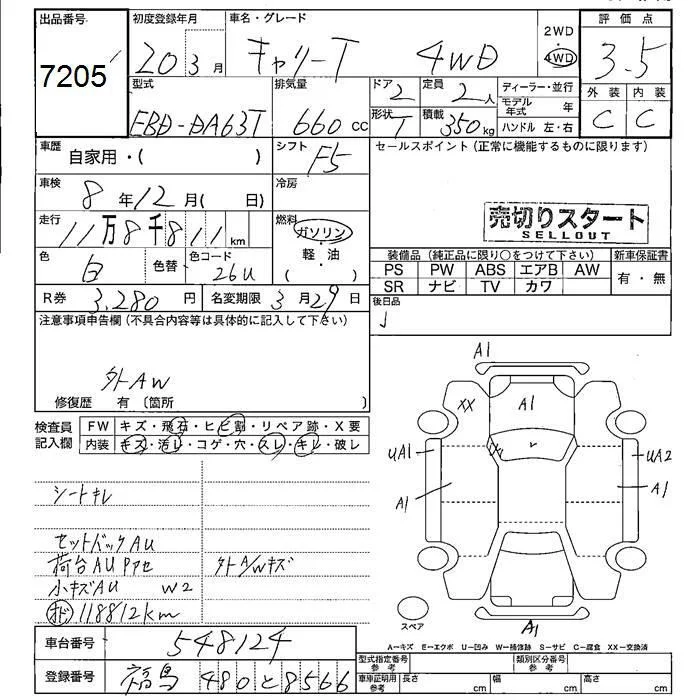 出品番号
7205
初度登録年月
20 3月
車名・グレード
キャリーT 4WD
2WD
4WD
評価点
3.5
外装 内装
C C
型式
EBD-DA63T
排気量
660 cc
ドア 2
定員 2人
形状 T
積載 350kg
ディーラー・並行
モデル年式 年
ハンドル 左・右
車歴 自家用・( )
シフト F5
セールスポイント(正常に機能するものに限ります)
車検 8年12月( 日)
冷房
売切りスタート
SELLOUT
走行 11万8千811km
燃料 ガソリン
(軽・油)
色 白
色替
色コード 26U
装備品(純正品に限り○をつけて下さい)
新車保証書
PS PW ABS エアB AW
SR ナビ TV カワ
有・無
R券 3,280円
名変期限 3月29日
後日品
注意事項申告欄(不具合内容等は具体的に記入して下さい)
外AW
修復歴 有(箇所 )
検査員記入欄
FW キズ・飛石・ヒビ割・リペア跡・X要
内装 キズ・汚レ・コゲ・穴・スレ・キレ・破レ
シートキレ
セットバックAU
荷台AU
小キズAU W2
外A/Wキズ
オド 118812km
A1
XX
A1
UA1
UA2
A1
A1
A1
スペア
A-キズ E-エクボ U-凹み W-補修跡 S-サビ C-腐食 XX-交換済
車台番号 548124
登録番号 福島 480 と 8566
型式指定番号 参考
類別区分番号 参考
車庫証明用 参考
長さ cm
幅 cm
高さ cm